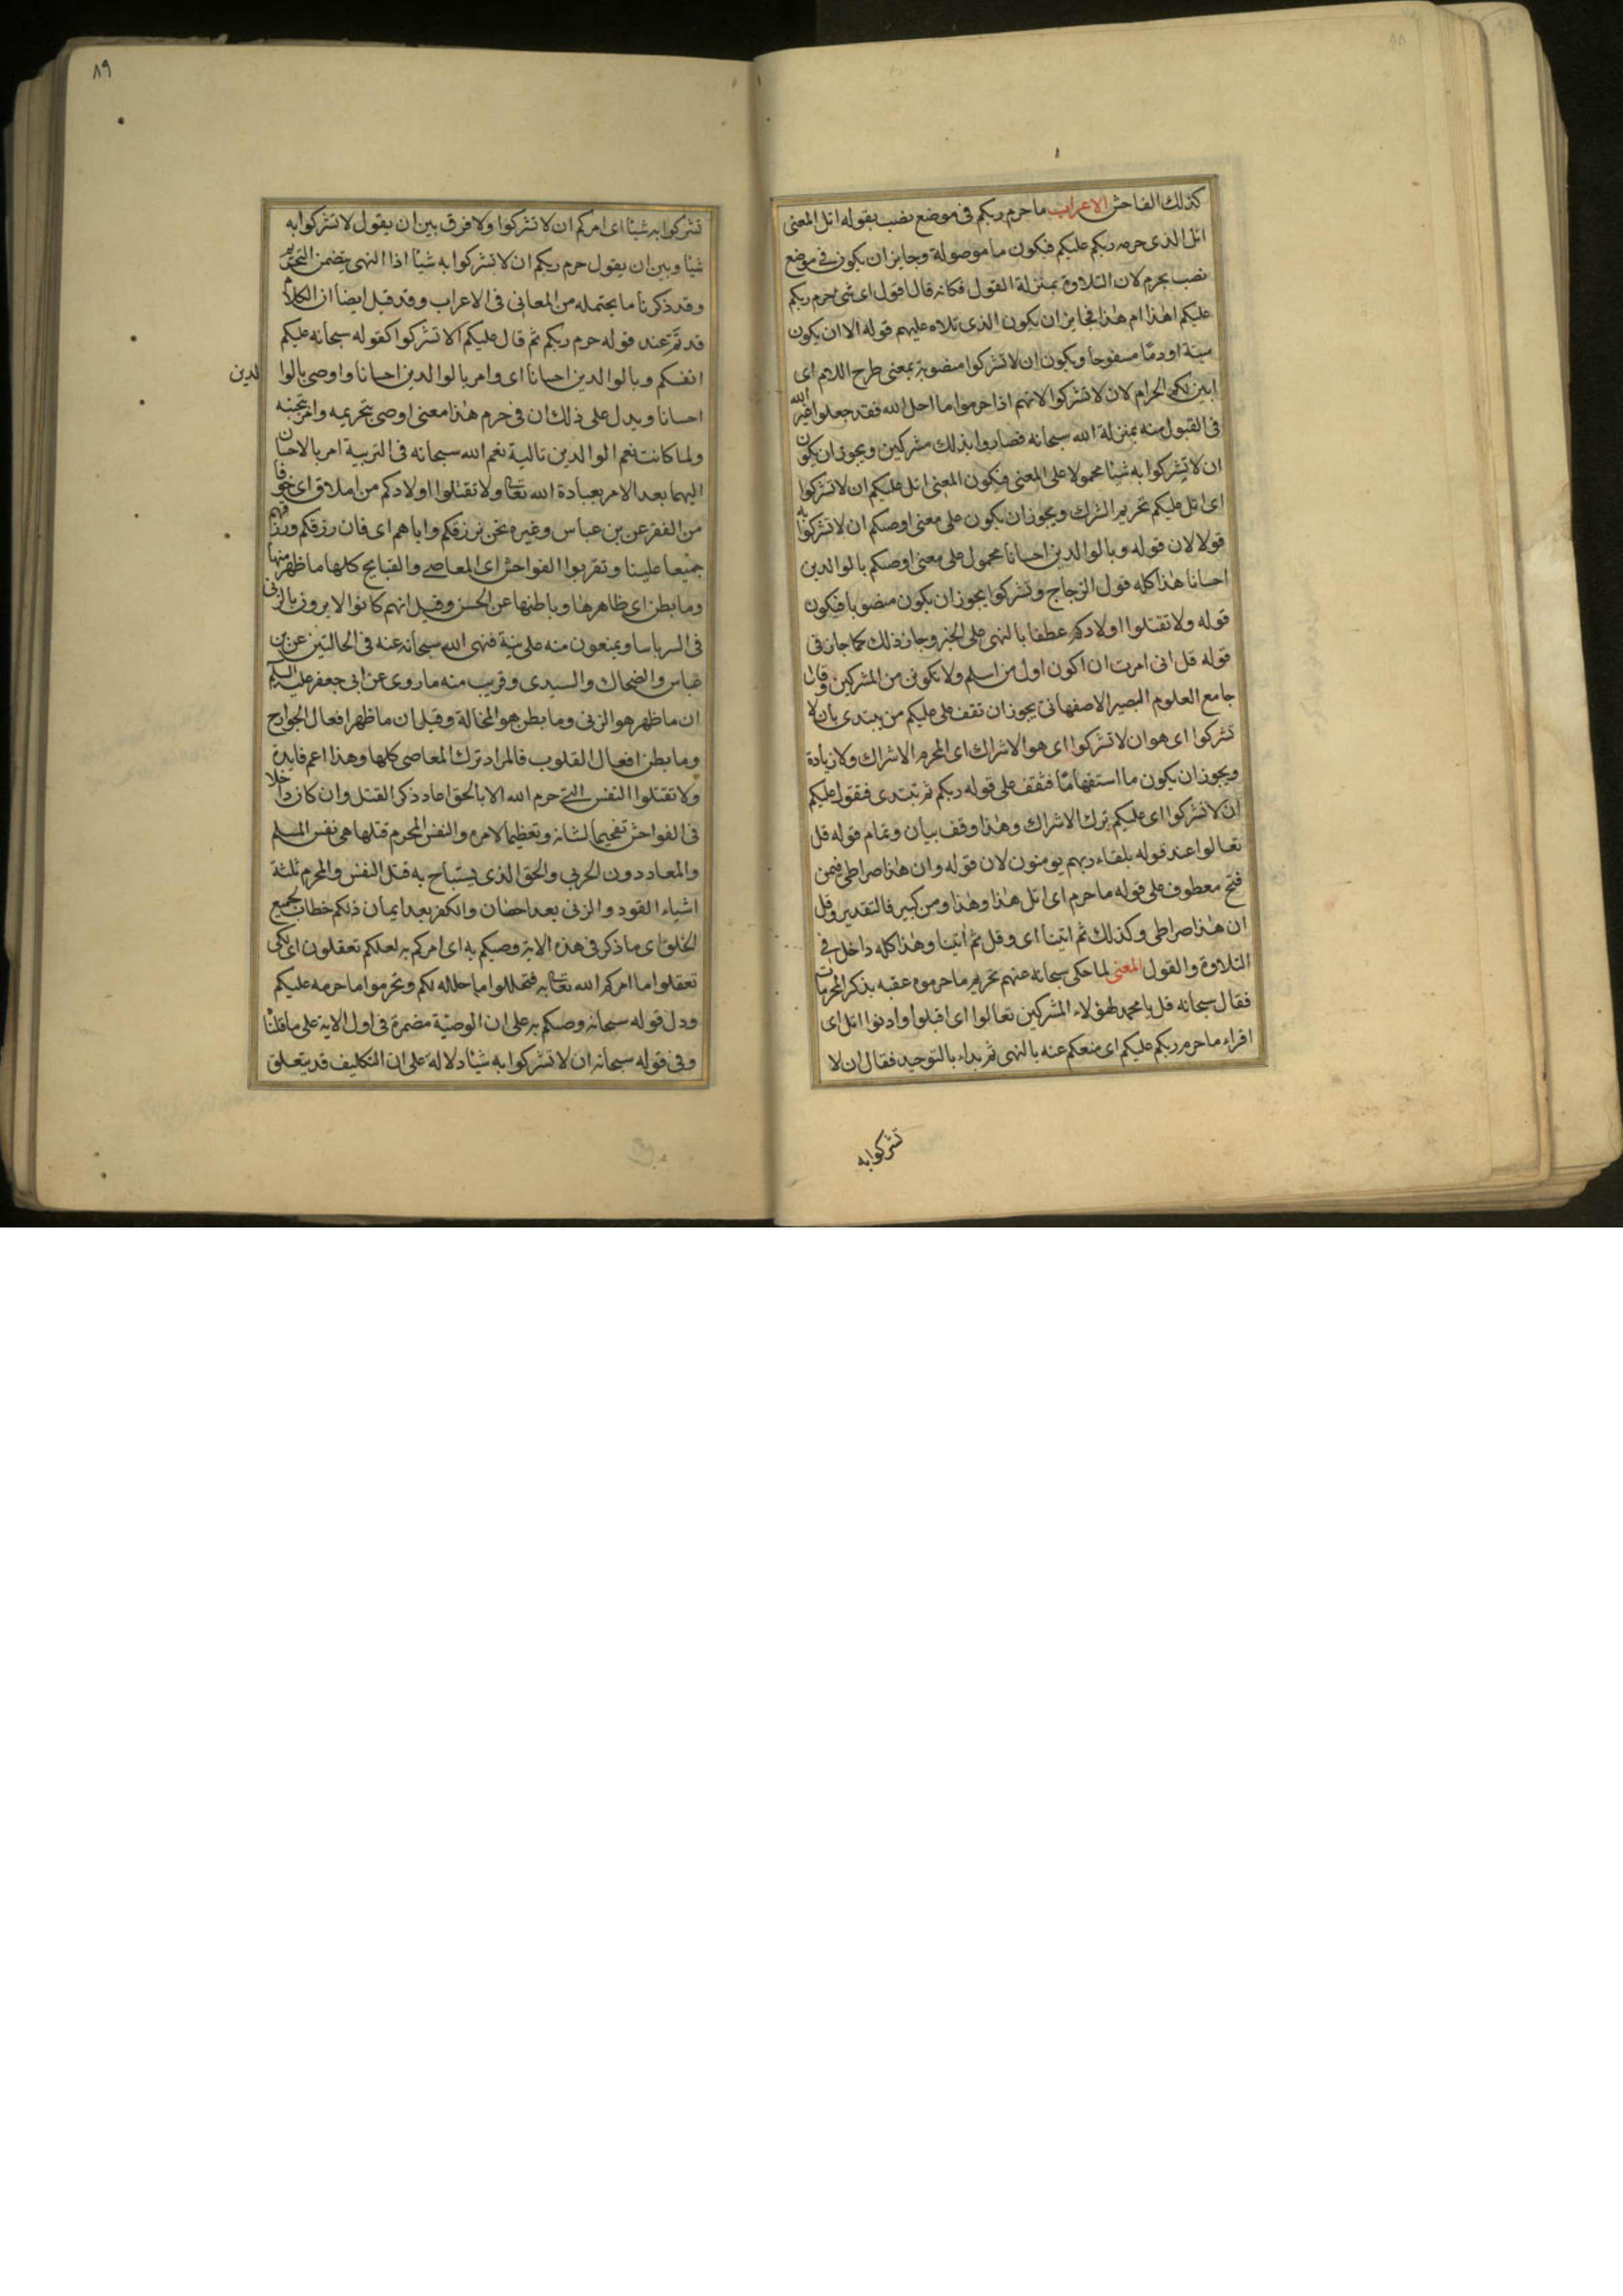 كذلك الفاحش الاعراب ما حرم ربكم فى موضع نصب بقوله اتل المعنى
اتل الذى حرمه ربكم عليكم فيكون ما موصولة وجايز ان يكون فى موضع
نصب بحرم لان التلاوة بمنزلة القول فكانه قال اقول اى شئ حرم ربكم
عليكم اهذا ام هذا فجايز ان يكون الذى تلاه عليهم قوله الا ان يكون
ميتة او دمًا مسفوحا ويكون ان لا تشركوا منصوبة بمعنى طرح اللام اى
ابين لكم الحرام لان لا تشركوا لانهم اذا حرموا ما احل الله فقد جعلوا غير الله
فى القبول منه بمنزلة الله سبحانه فصاروا بذلك مشركين ويجوز ان يكون
ان لا تشركوا به شيئا محمولا على المعنى فيكون المعنى اتل عليكم ان لا تشركوا
اى اتل عليكم تحريم الشرك ويجوز ان يكون على معنى اوصيكم ان لا تشركوا به
قولا لان قوله وبالوالدين احسانا محمول على معنى اوصيكم بالوالدين
احسانا هذا كله قول الزجاج وتشركوا يجوز ان يكون منصوبا فيكون
قوله ولا تقتلوا اولادكم عطفا بالنهى على الخبر وجاز ذلك كما جاز فى
قوله قل انى امرت ان اكون اول من اسلم ولا تكونن من المشركين وقال
جامع العلوم البصير الاصفهانى يجوز ان تقف على عليكم من يبتدى بان لا
تشركوا اى هو ان لا تشركوا اى هو الاشراك اى المحرم الاشراك ولا زيادة
ويجوز ان يكون ما استفهامًا فتقف على قوله ربكم ثم تبتدى فتقول عليكم
ان لا تشركوا اى عليكم ترك الاشراك وهذا وقف بيان وتمام قوله قل
تعالوا عند قوله بلقاء ربهم يومنون لان قوله وان هذا صراطى فيمن
فتح معطوف على قوله ما حرم اى اتل هذا وهذا ومن كسر فالتقدير وقل
ان هذا صراطى وكذلك ثم اتينا اى وقل ثم اتينا وهذا كله داخل فى
التلاوة والقول المعنى لما حكى سبحانه عنهم تحريم ما حرموه عقبه بذكر المحرمات
فقال سبحانه قل يا محمد لهؤلاء المشركين تعالوا اى اقبلوا وادنوا اتل اى
اقراء ما حرم ربكم عليكم اى منعكم عنه بالنهى ثم بداء بالتوحيد فقال ان لا
تشركوا به
٨٩
تشركوا به شيئا اى امركم ان لا تشركوا ولا فرق بين ان يقول لا تشركوا به
شيئا وبين ان يقول حرم ربكم ان لا تشركوا به شيئا اذا النهى يتضمن التحريم
وقد ذكرنا ما يحتمله من المعانى فى الاعراب وقد قيل ايضا ان الكلام
قد تم عند قوله حرم ربكم ثم قال عليكم الا تشركوا كقوله سبحانه عليكم
انفسكم وبالوالدين احسانا اى وامر بالوالدين احسانا واوصى بالوا لدين
احسانا ويدل على ذلك ان فى حرم هذا معنى اوصى بتحريمه وامر بتجنبه
ولما كانت نعم الوالدين تالية نعم الله سبحانه فى التربية امر بالاحسان
اليهما بعد الامر بعبادة الله تعالى ولا تقتلوا اولادكم من املاق اى خوفا
من الفقر عن بن عباس وغيره نحن نرزقكم واياهم اى فان رزقكم ورزقهم
جميعا علينا وتقربوا الفواحش اى المعاصى والقبايح كلها ما ظهر منها
وما بطن اى ظاهرها وباطنها عن الحسن وقيل انهم كانوا لا يرون بالزنى
فى السر باسا ويمنعون منه علانية فنهى الله سبحانه عنه فى الحالتين عن بن
عباس والضحاك والسيدى وقريب منه ما روى عن ابى جعفر عليه السلم
ان ما ظهر هو الزنى وما بطن هو المخالة وقيل ان ما ظهر افعال الجوارح
وما بطن افعال القلوب فالمراد ترك المعاصى كلها وهذا اعم فايدة
ولا تقتلوا النفس التى حرم الله الا بالحق اعاد ذكر القتل وان كان داخلا
فى الفواحش تفخيما لشانه وتعظيما لامره والنفس المحرم قتلها هى نفس المسلم
والمعاهد دون الحربى والحق الذى يستباح به قتل النفس والمحرم ثلثة
اشياء القود والزنى بعد احصان والكفر بعد ايمان ذلكم خطاب لجميع
الخلق اى ما ذكر فى هذه الاية وصيكم به اى امركم به لعلكم تعقلون اى لكى
تعقلوا ما امركم الله تعالى به فتحللوا ما حلله لكم وتحرموا ما حرمه عليكم
ودل قوله سبحانه وصيكم به على ان الوصيّة مضمرة فى اول الاية على ما قلنا
وفى قوله سبحانه ان لا تشركوا به شيئا دلالة على ان التكليف قد يتعلق